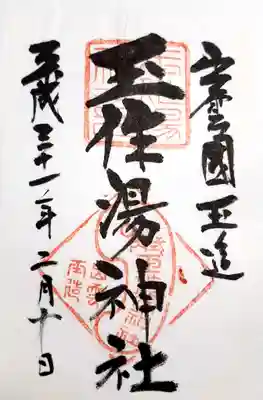 出雲國玉造
玉作湯神社
平成三十一年二月十日